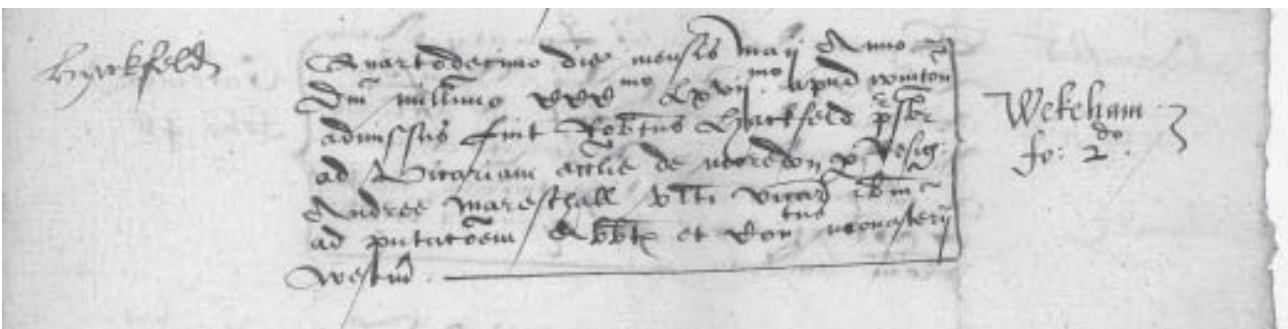 Hyrkfeld
Quartodecimo die mensis Maij Anno
Dni millimo CCC mo lxvij mo apud Wynton
admissus fuit Robtus Hyrkfeld psbr
ad Vicariam ecclie de Moredon p resig
Andree Mareschall ulti vicarij ibm
ad pntacoem Abbtis et Conventus monasterij
Westm
Wekeham
fo: 2do.